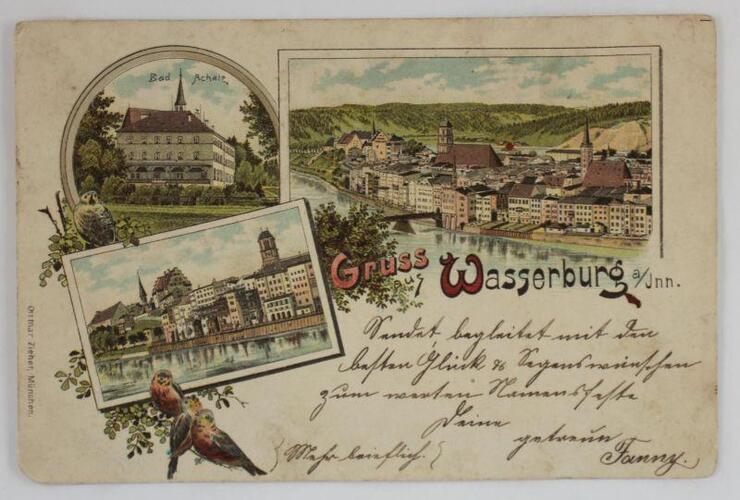 Bad Achatz
Gruss
aus
Wasserburg a/Inn.
Sendet, begleitet mit den
besten Glück & Segenswünschen
zum werten Namensfeste
Deine
getreue
Fanny.
(Mehr brieflich.)
Ottmar Zieher, München.